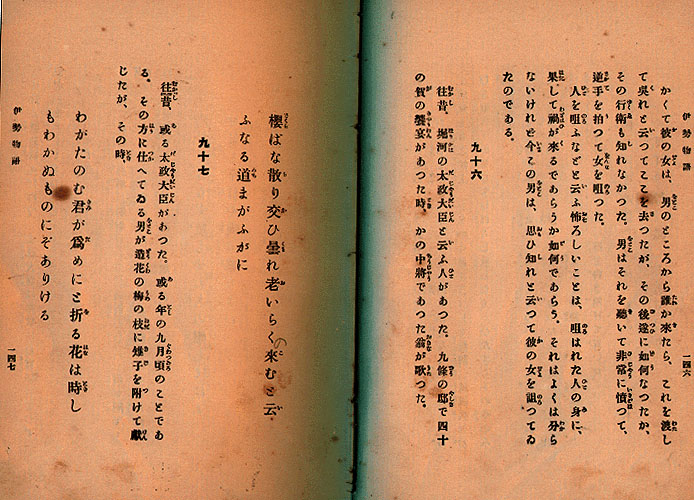 伊勢物語
一四六
かくて彼の女は、男のところから誰か來たら、これを渡し
て吳れと云つてこゝを去つたが、その後遂に如何なつたか、
その行衛も知れなかつた。男はそれを聽いて非常に憤つて、
逆手を拍つて女を咀つた。
人を咀ふなどと云ふ怖ろしいことは、咀はれた人の身に、
果して禍が來るであらうか如何であらう。それはよくは分ら
ないけれど今この男は、思ひ知れと云つて彼の女を詛つてゐ
たのである。
九十六
往昔、堀河の太政大臣と云ふ人があつた。九條の邸で四十
の賀の饗宴があつた時、かの中將であつた翁が歌つた。
櫻ばな散り交ひ曇れ老いらくの來むと云
ふなる道まがふがに
九十七
往昔、或る太政大臣があつた。或る年の九月頃のことであ
る。その方に仕へてゐる男が造花の梅の枝に雉子を附けて獻
じたが、その時、
わがたのむ君が爲めにと折る花は時し
もわかぬものにぞありける
伊勢物語
一四七